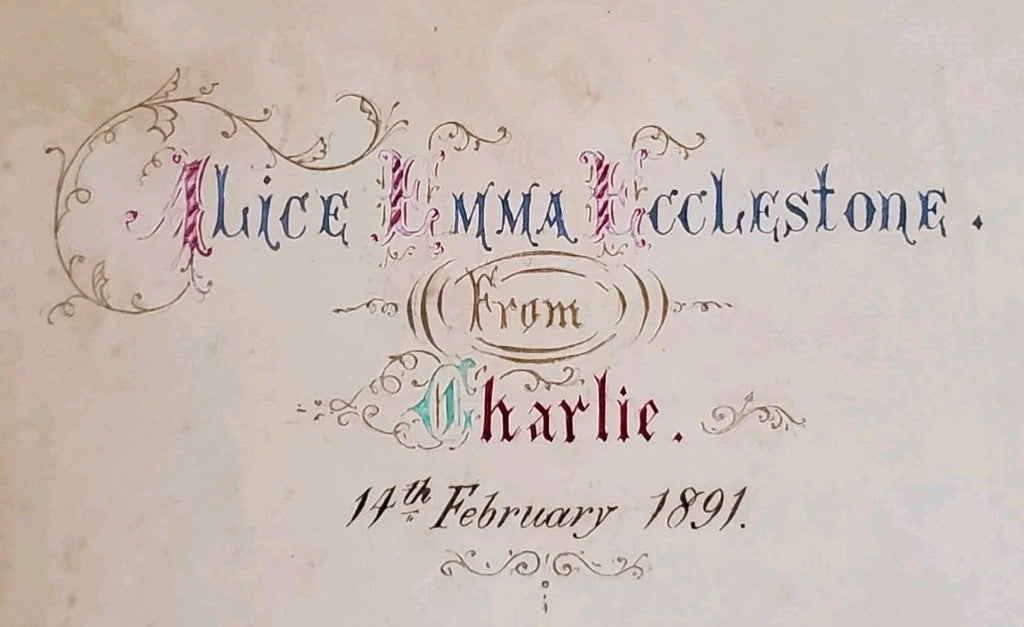 Alice Emma Ecclestone.
From
Charlie.
14th February 1891.